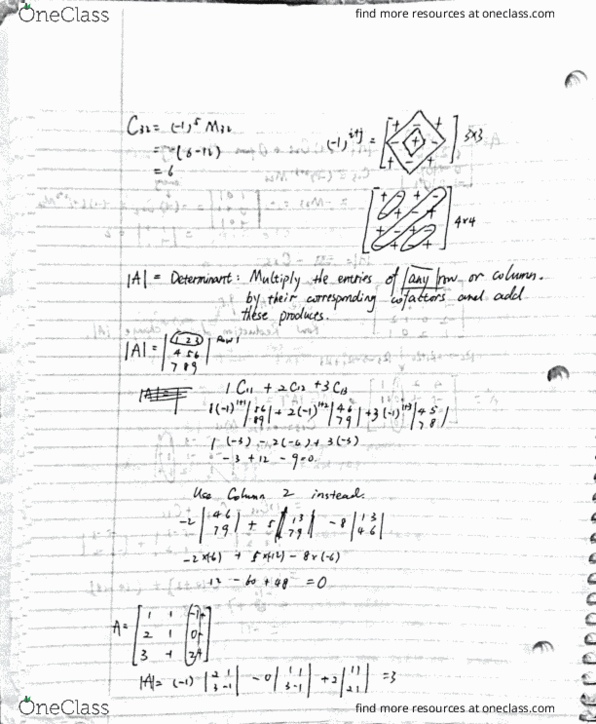 OneClass
find more resources at oneclass.com
C32 = (-1)^5 M32
= -(6-12)
= 6
(-1)^i+j = [+ - + - + - + - +] 3x3
[+ - + - - + - + + - + - - + - +] 4x4
|A| = Determinant: Multiply the entries of any row or column.
by their corresponding cofactors and add
these produces.
|A| = |1 2 3| Row 1
4 5 6
7 8 9
|A| =
1 C11 + 2 C12 + 3 C13
1(-1)^1+1 |5 6 8 9| + 2(-1)^1+2 |4 6 7 9| + 3(-1)^1+3 |4 5 7 8|
1 (-3) - 2(-6) + 3(-3)
-3 + 12 - 9 = 0.
Use Column 2 instead.
-2 |4 6 7 9| + 5 |1 3 7 9| - 8 |1 3 4 6|
-2x(-6) + 5x(-12) - 8x(-6)
12 - 60 + 48 = 0
A = [1 1 -1
2 1 0
3 -1 2]
|A| = (-1) |2 1 3 -1| - 0 |1 1 3 -1| + 2 |1 1 2 1| = 3
OneClass
find more resources at oneclass.com